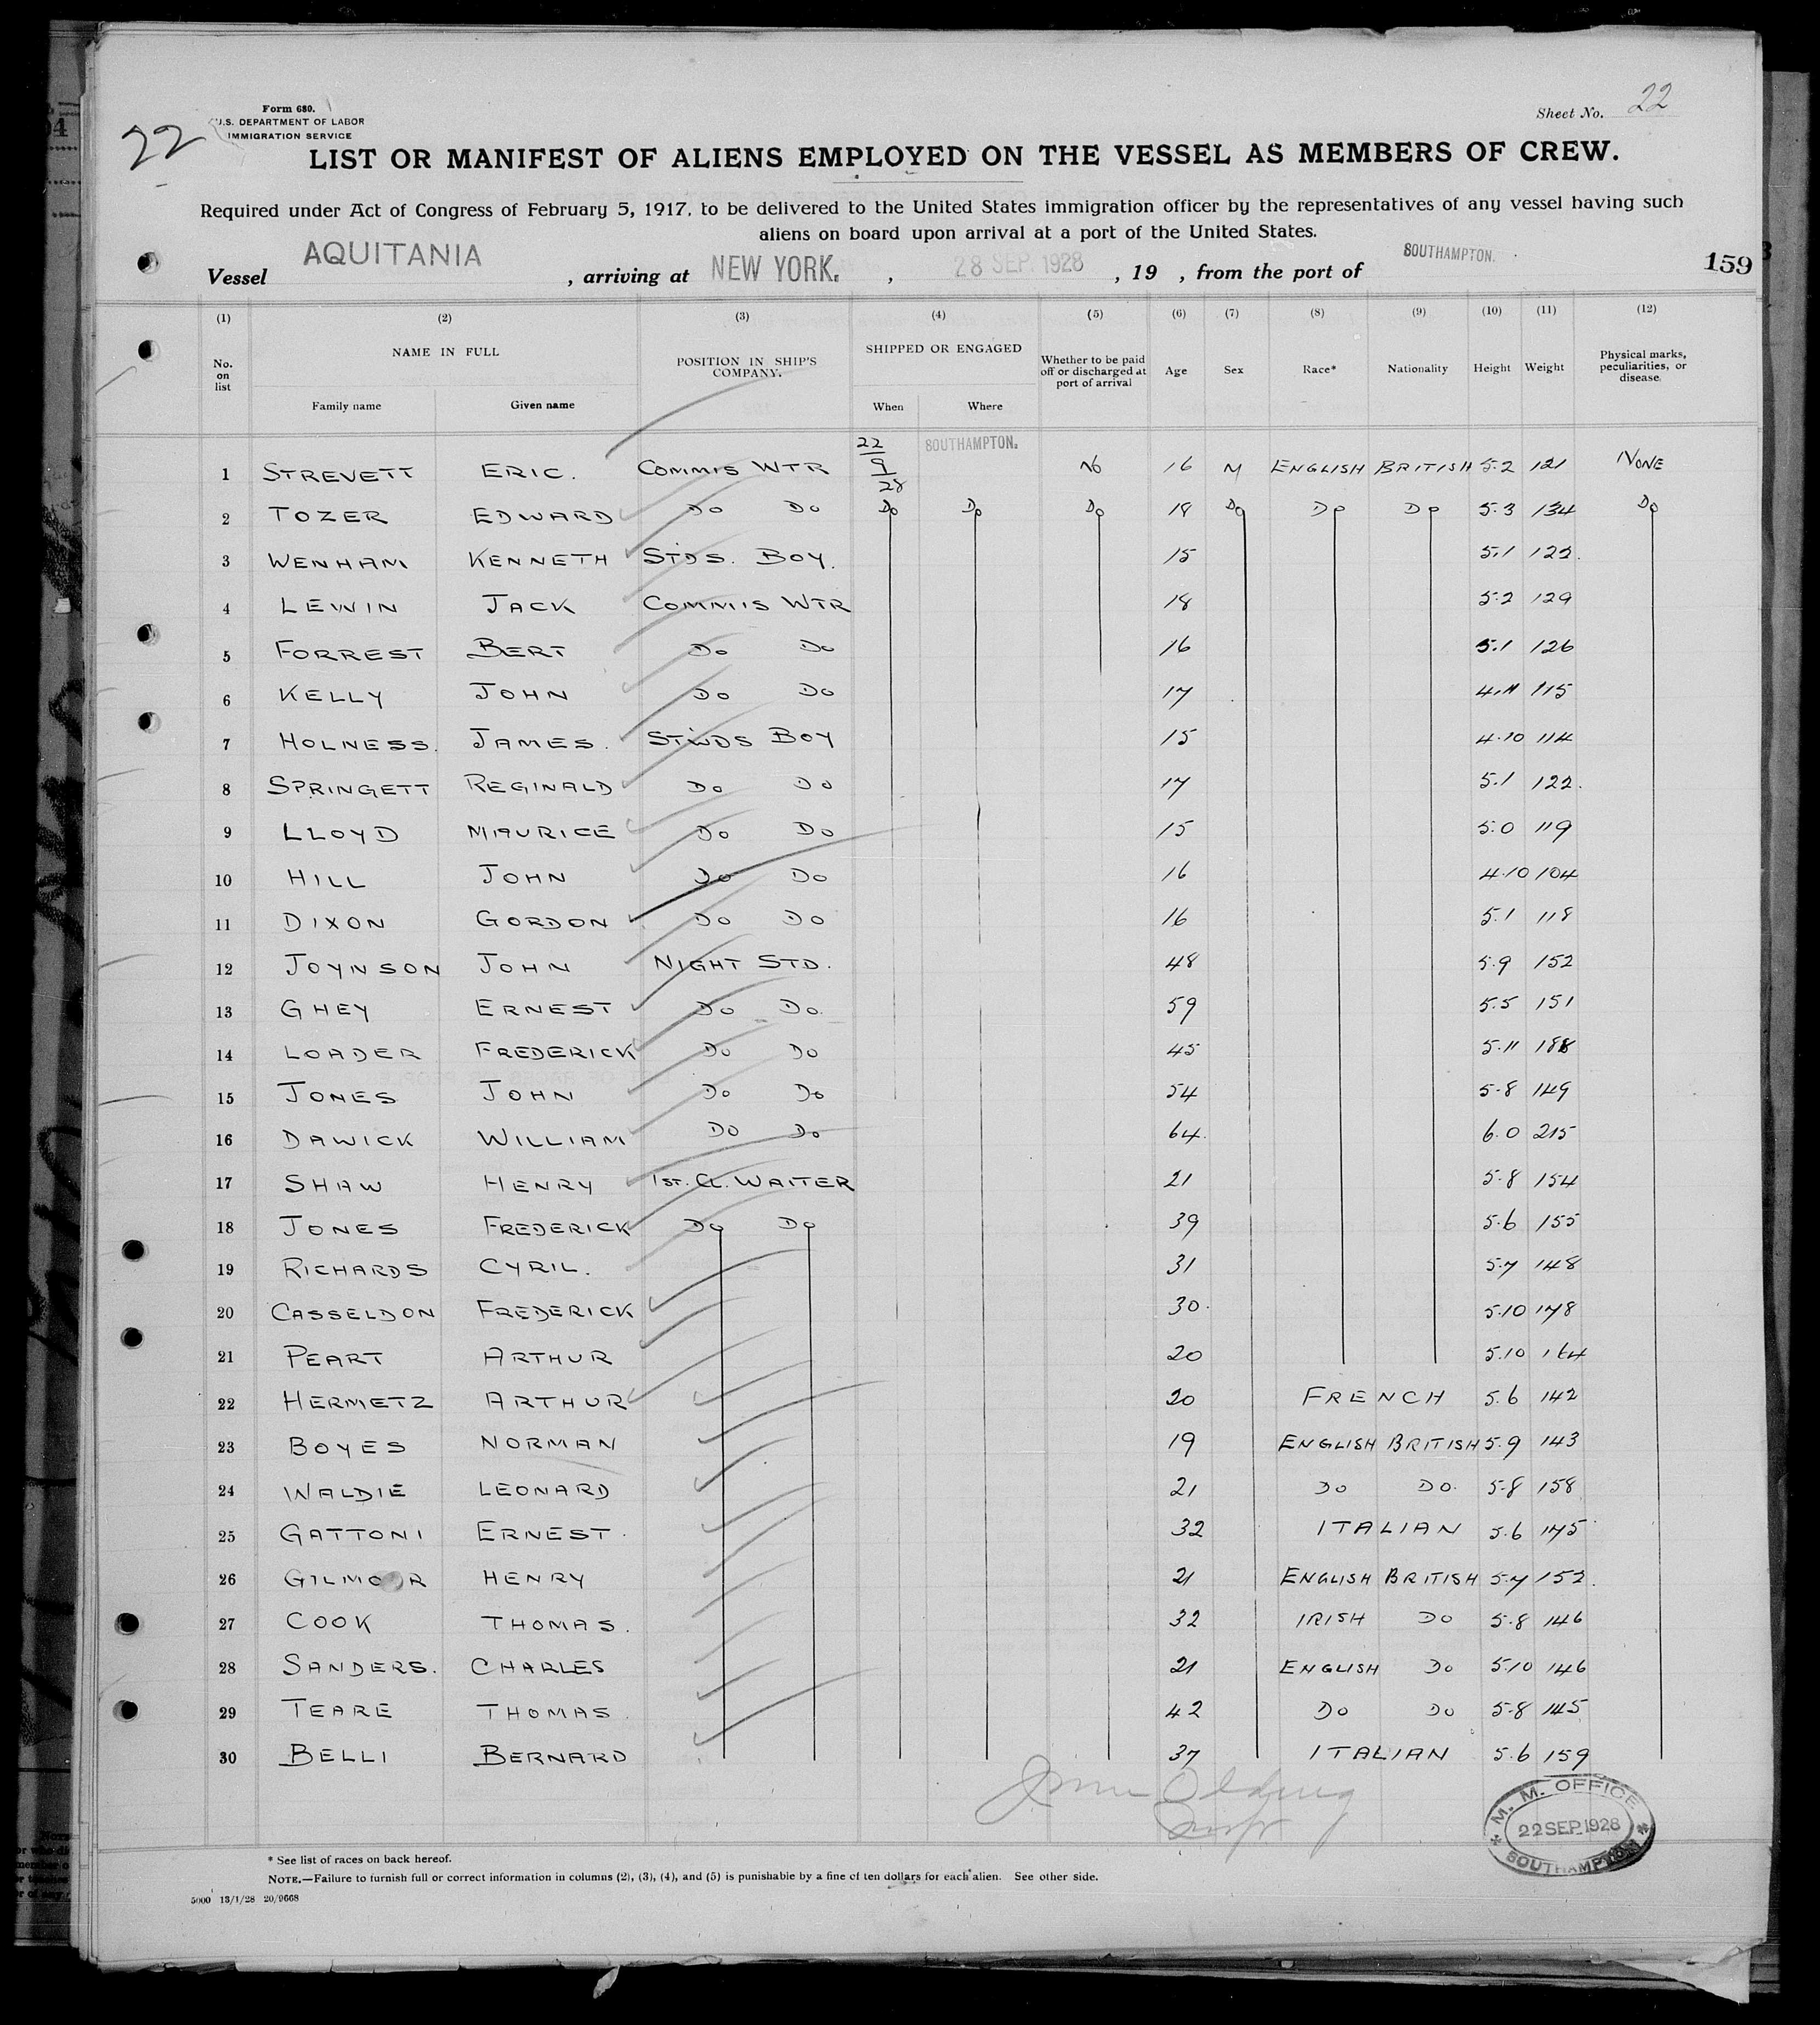 Form 680.
U.S. DEPARTMENT OF LABOR
IMMIGRATION SERVICE
22
Sheet No. 22
LIST OR MANIFEST OF ALIENS EMPLOYED ON THE VESSEL AS MEMBERS OF CREW.
Required under Act of Congress of February 5, 1917, to be delivered to the United States immigration officer by the representatives of any vessel having such
aliens on board upon arrival at a port of the United States.
Vessel AQUITANIA, arriving at NEW YORK., 28 SEP. 1928, 19 , from the port of SOUTHAMPTON. 159
(1) (2) (3) (4) (5) (6) (7) (8) (9) (10) (11) (12)
No. on list NAME IN FULL POSITION IN SHIP'S COMPANY. SHIPPED OR ENGAGED Whether to be paid off or discharged at port of arrival Age Sex Race* Nationality Height Weight Physical marks, peculiarities, or disease.
Family name Given name When Where
1 STREVETT ERIC. COMMIS WTR 22/9/28 SOUTHAMPTON. No 16 M ENGLISH BRITISH 5.2 121 NONE
2 TOZER EDWARD Do Do Do Do Do 18 Do Do Do 5.3 134 Do
3 WENHAM KENNETH STDS. BOY. 15 5.1 122.
4 LEWIN JACK COMMIS WTR 18 5.2 129
5 FORREST BERT Do Do 16 5.1 126
6 KELLY JOHN Do Do 17 4.11 115
7 HOLNESS. JAMES. STWDS BOY 15 4.10 114
8 SPRINGETT REGINALD Do Do 17 5.1 122.
9 LLOYD MAURICE Do Do 15 5.0 119
10 HILL JOHN Do Do 16 4.10 104
11 DIXON GORDON Do Do 16 5.1 118
12 JOYNSON JOHN NIGHT STD. 48 5.9 152
13 GHEY ERNEST Do Do. 59 5.5 151
14 LOADER FREDERICK Do Do 45 5.11 188
15 JONES JOHN Do Do 54 5.8 149
16 DAWICK WILLIAM Do Do 64. 6.0 215
17 SHAW HENRY 1ST. CL. WAITER 21 5.8 154
18 JONES FREDERICK Do Do 39 5.6 155
19 RICHARDS CYRIL. 31 5.7 148
20 CASSELDON FREDERICK 30. 5.10 178
21 PEART ARTHUR 20 5.10 164
22 HERMETZ ARTHUR 20 FRENCH 5.6 142
23 BOYES NORMAN 19 ENGLISH BRITISH 5.9 143
24 WALDIE LEONARD 21 Do Do. 5.8 158
25 GATTONI ERNEST. 32 ITALIAN 5.6 175
26 GILMOOR HENRY 21 ENGLISH BRITISH 5.7 152.
27 COOK THOMAS. 32 IRISH Do 5.8 146
28 SANDERS. CHARLES 21 ENGLISH Do 5.10 146
29 TEARE THOMAS. 42 Do Do 5.8 145
30 BELLI BERNARD 37 ITALIAN 5.6 159
M. M. OFFICE
22 SEP. 1928
SOUTHAMPTON
* See list of races on back hereof.
NOTE.—Failure to furnish full or correct information in columns (2), (3), (4), and (5) is punishable by a fine of ten dollars for each alien. See other side.
5000 13/1/28 20/9668